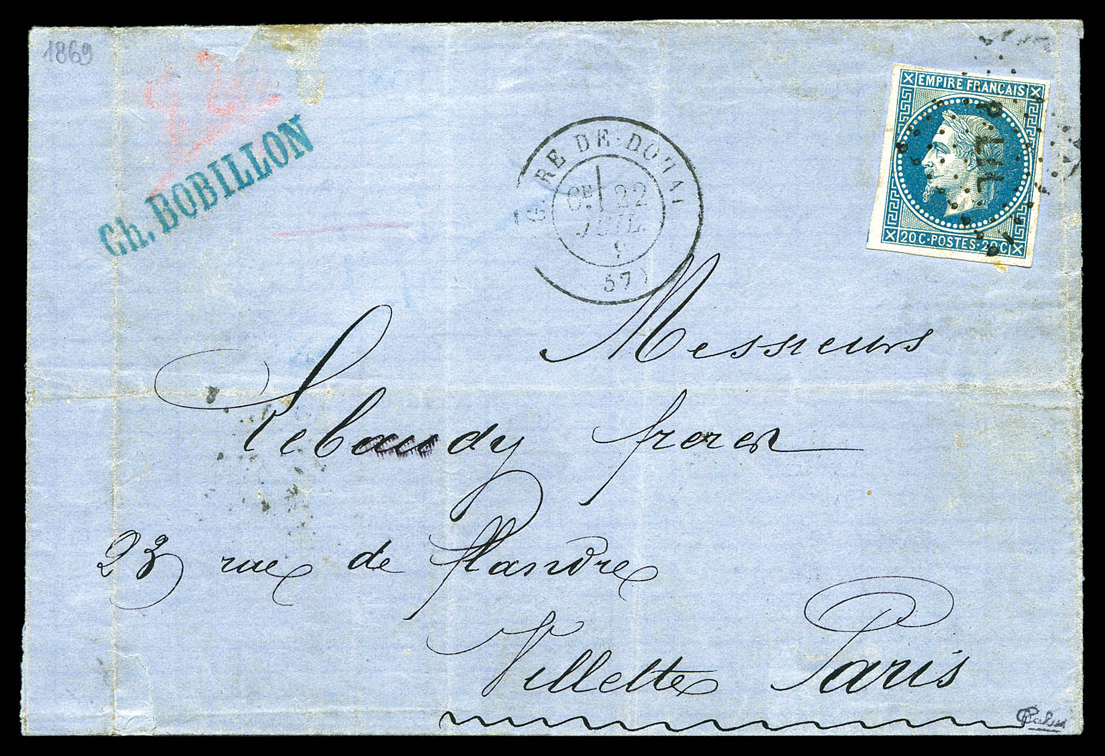 1869
Ch. BOBILLON
GARE DE DOUAI
22
JUIL.
57
EMPIRE FRANÇAIS
20 C · POSTES · 20 C
Messieurs
Lebaudy freres
23 rue de Flandre
Villette Paris